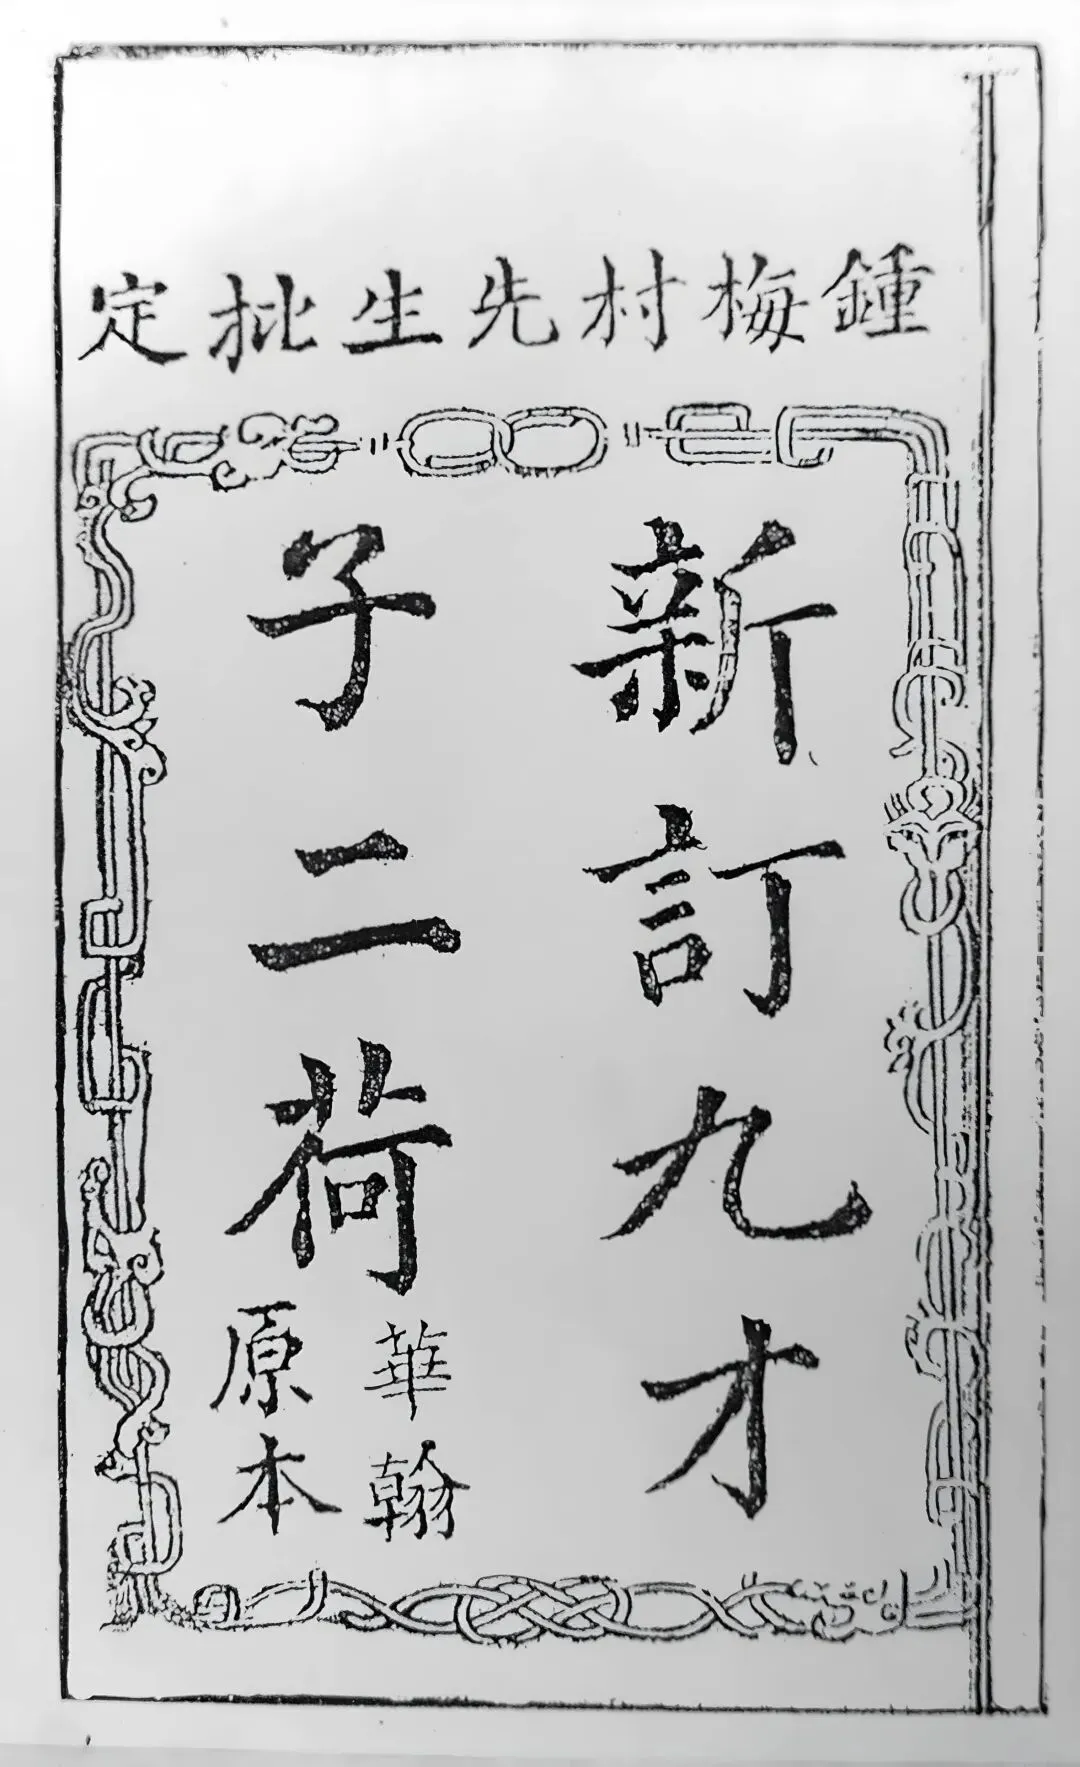 鍾梅村先生批定
新訂九才
子二荷
華翰
原本